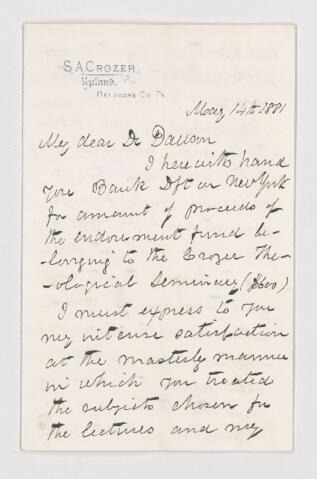 S. A. CROZER.
Upland,
DELAWARE CO. PA
May 14th 1881
My dear Dr Dawson
I herewith hand
you Bank Dft on New York
for amount of proceeds of
the endowment fund be-
-longing to the Crozer The-
-ological Seminary ($600)
I must express to you
my intense satisfaction
at the masterly manner
in which you treated
the subjects chosen for
the lectures and my